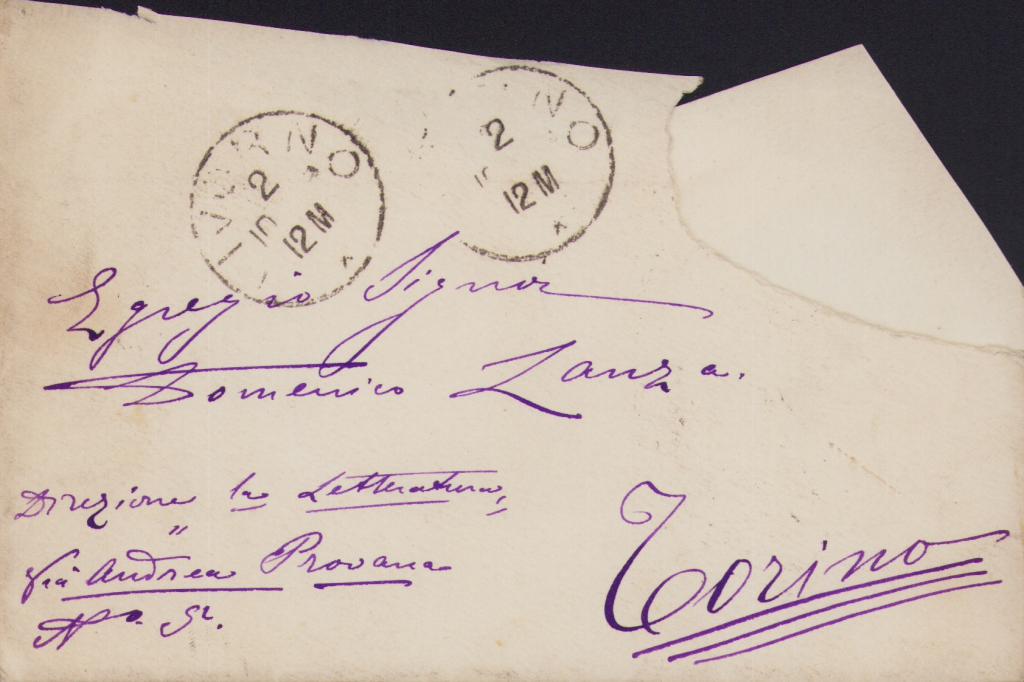 LIVORNO
2
10
12 M
NO
2
10
12 M
Egregio Signor
Domenico Lanza.
Direzione la Letteratura,
"
Via Andrea Provana
No.
Torino